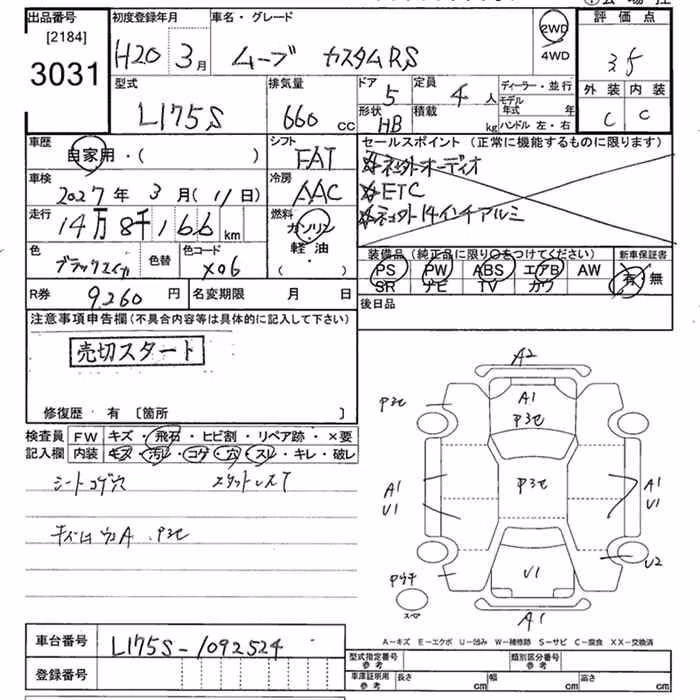 出品番号
[2184]
3031
初度登録年月
H20 3月
車名・グレード
ムーブ カスタムRS
2WD
4WD
評価点
3.5
外装 内装
C C
型式
L175S
排気量
660 cc
ドア
5
定員
4人
形状
HB
積載
kg
ディーラー・並行
モデル
年式 年
ハンドル 左・右
車歴
自家用・( )
シフト
FAT
車検
2027年 3月(11日)
冷房
AAC
走行
14万8千166km
燃料
ガソリン
軽・油
・( )
色
色替
色コード
X06
R券
9260円
名変期限 月 日
セールスポイント(正常に機能するものに限ります)
☆ネット外オーディオ
☆ETC
☆ネット外14インチアルミ
装備品(純正品に限り○をつけてください)
新車保証書
PS PW ABS エアB AW
SR ナビ TV カワ
有・無
後日品
注意事項申告欄(不具合内容等は具体的に記入して下さい)
売切スタート
修復歴 有 [箇所 ]
検査員
記入欄
FW キズ・飛石・ヒビ割・リペア跡・×要
内装 キズ・汚レ・コゲ・穴・スレ・キレ・破レ
シートコゲ穴
A2
A1
A1
U1
A1
U1
U2
U1
A1
スペア
A-キズ E-エクボ U-凹み W-補修跡 S-サビ C-腐食 XX-交換済
車台番号
L175S-1092524
登録番号
型式指定番号
参考
類別区分番号
参考
車庫証明用
参考
長さ cm
幅 cm
高さ cm